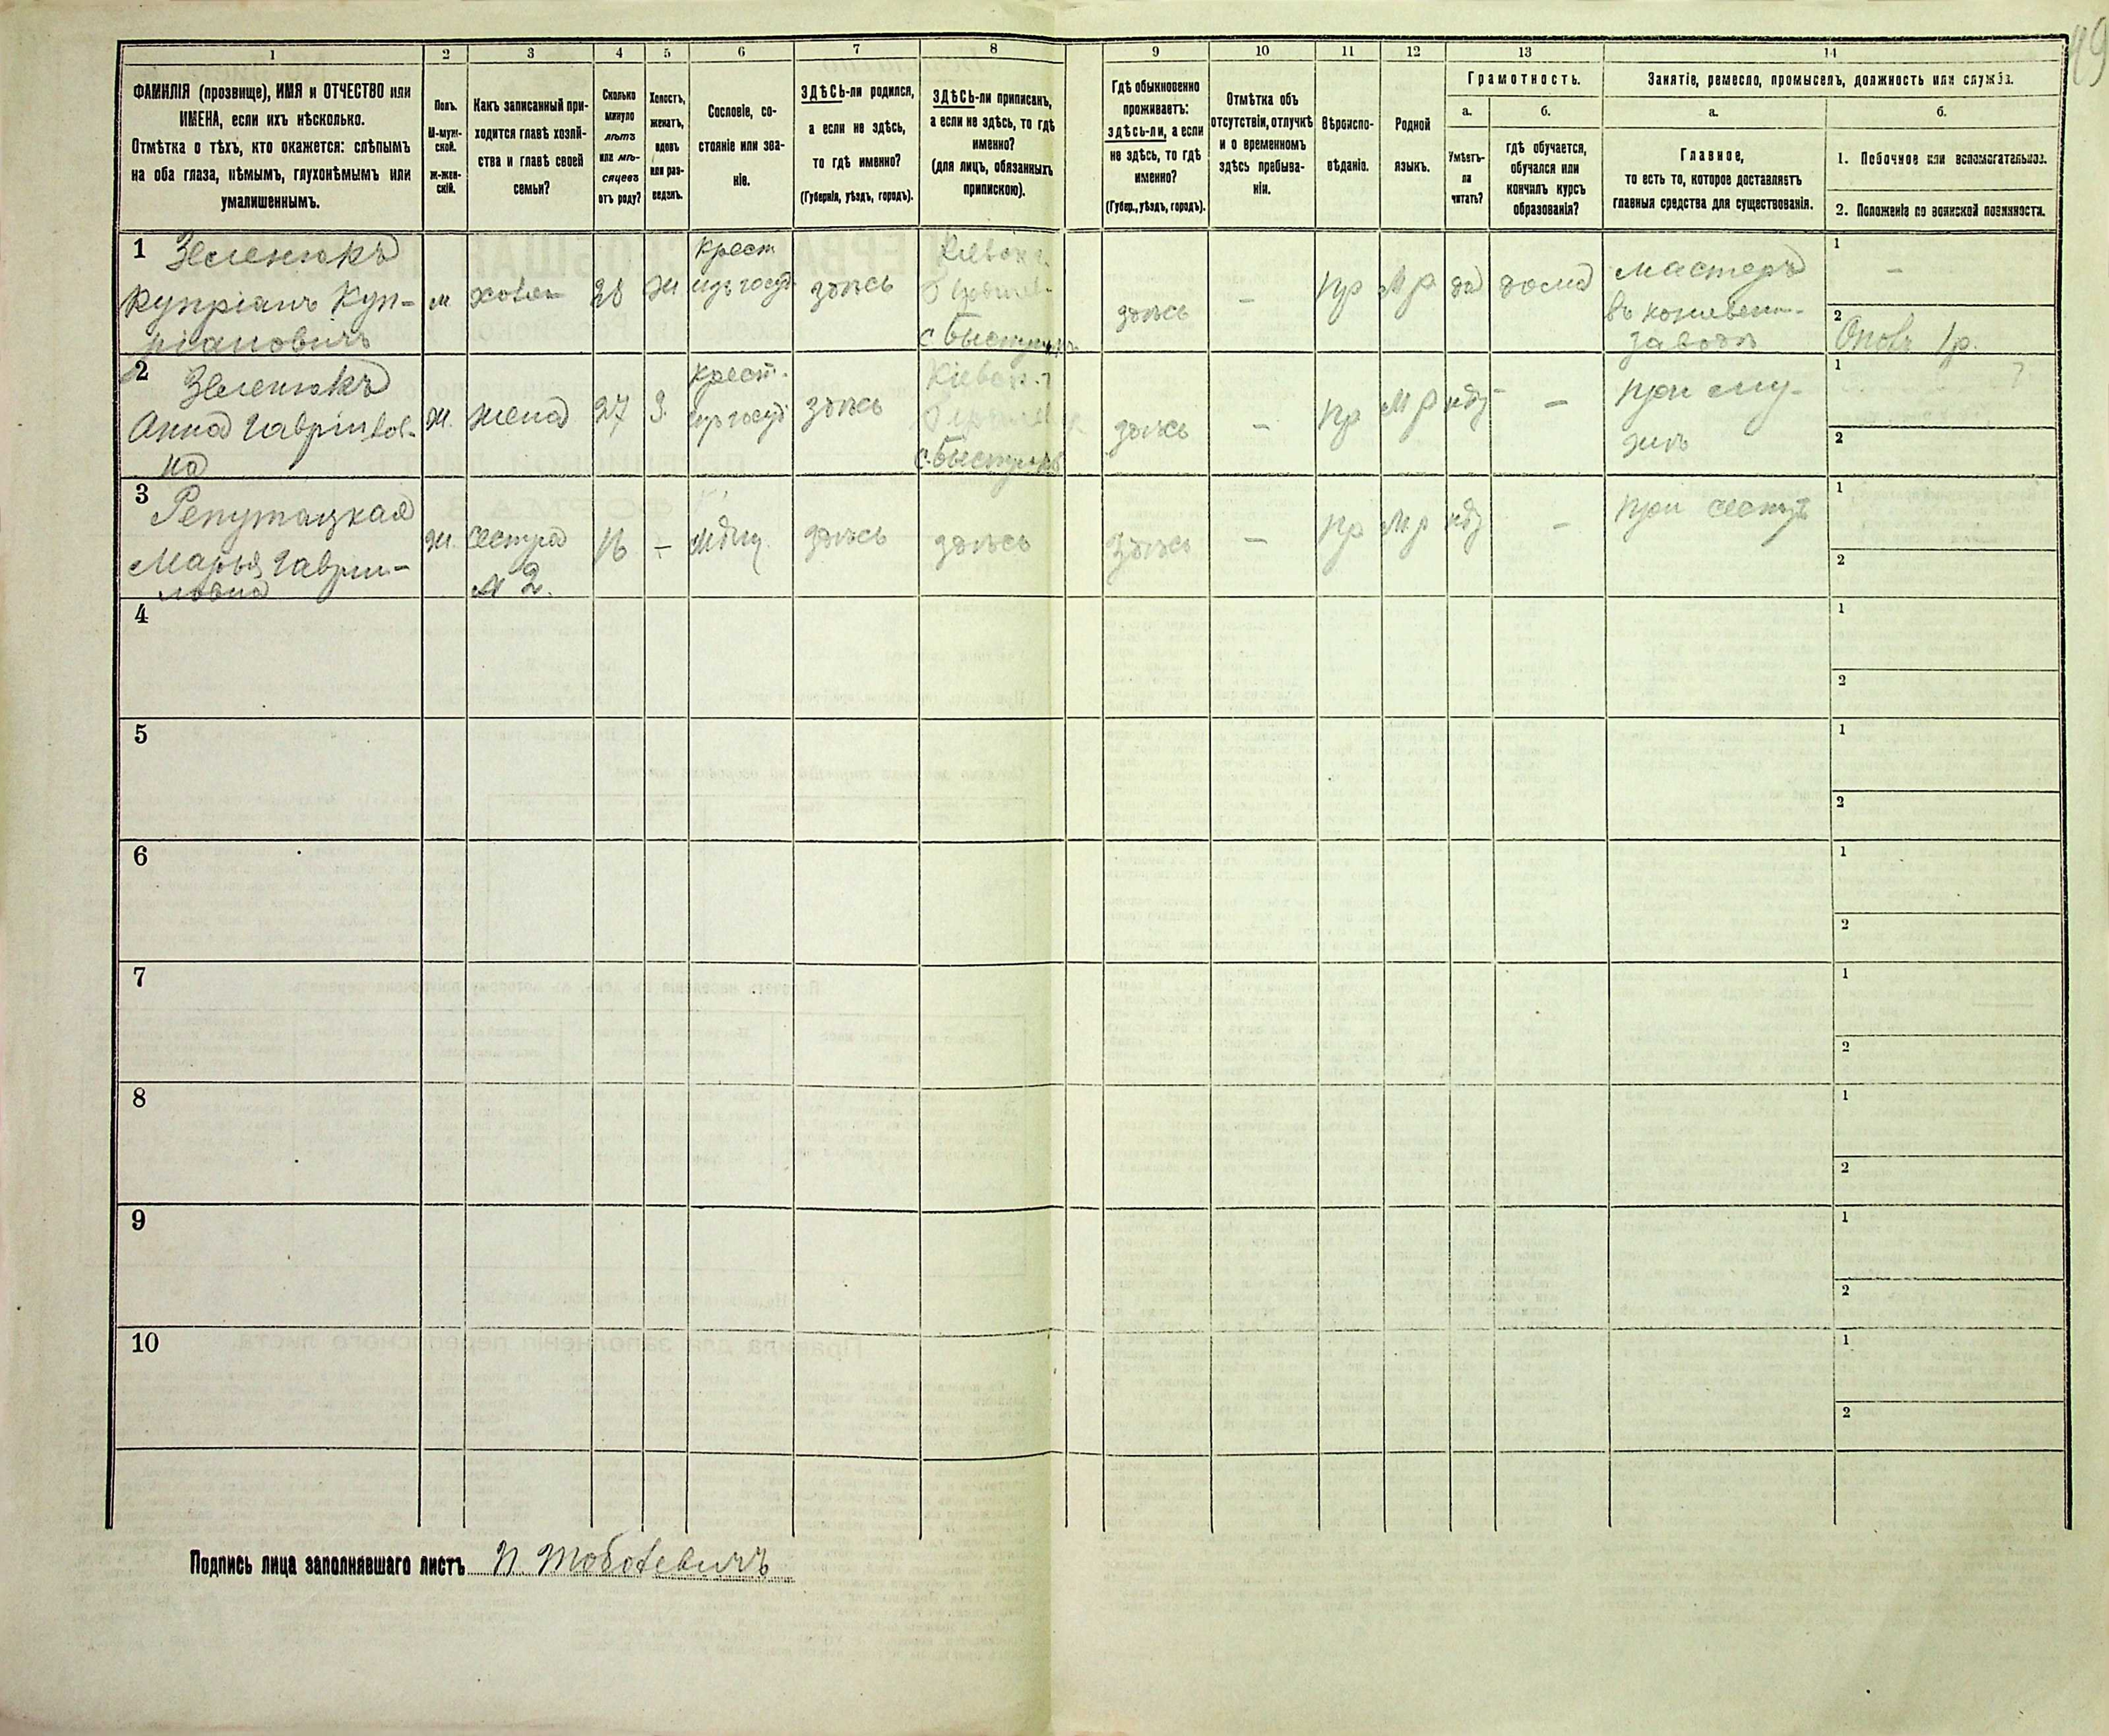 49
1
2
3
4
5
6
7
8
9
10
11
12
13
14
ФАМИЛІЯ (прозвище), ИМЯ и ОТЧЕСТВО или
ИМЕНА, если ихъ нѣсколько.
Отмѣтка о тѣхъ, кто окажется: слѣпымъ
на оба глаза, нѣмымъ, глухонѣмымъ или
умалишеннымъ.
Полъ.
М-муж-
ской.
ж-жен-
скій.
Какъ записанный при-
ходится главѣ хозяй-
ства и главѣ своей
семьи?
Сколько
минуло
лѣтъ
или мѣ-
сяцевъ
отъ роду?
Холостъ,
женатъ,
вдовъ
или раз-
веденъ.
Сословіе, со-
стояніе или зва-
ніе.
ЗДѢСЬ-ли родился,
а если не здѣсь,
то гдѣ именно?
(Губернія, уѣздъ, городъ).
ЗДѢСЬ-ли приписанъ,
а если не здѣсь, то гдѣ
именно?
(для лицъ, обязанныхъ
припискою).
Гдѣ обыкновенно
проживаетъ:
здѣсь-ли, а если
не здѣсь, то гдѣ
именно?
(Губер., уѣздъ, городъ).
Отмѣтка объ
отсутствіи, отлучкѣ
и о временномъ
здѣсь пребыва-
ніи.
Вѣроиспо-
вѣданіе.
Родной
языкъ.
Грамотность.
а.
Умѣетъ-
ли
читать?
б.
гдѣ обучается,
обучался или
кончилъ курсъ
образованія?
Занятіе, ремесло, промыселъ, должность или служба.
а.
Главное,
то есть то, которое доставляетъ
главныя средства для существованія.
б.
1. Побочное или вспомогательное.
2. Положеніе по воинской повинности.
1 Зеленюкъ
Купріанъ Куп-
ріановичъ
м
хозяи
28
ж
крест
изъ госуд
здѣсь
Кіевск. г.
с Быстрикъ
здѣсь
—
пр
м р
да
дома
мастеръ
въ кожевен.
заводѣ
1
—
2
Ополч 1 р.
2 Зеленюкъ
Анна Гавріилов-
на
ж.
жена
27
З.
крест.
изъ госуд
здѣсь
Кіевск. г
с. Быстрикъ
здѣсь
—
пр
м р
нѣт
—
при му-
жѣ
1
2
3 Репутацкая
Марья Гаври-
ловна
ж.
сестра
№ 2.
16
—
мѣщ.
здѣсь
здѣсь
здѣсь
—
пр
м р
нѣт
—
при сестрѣ
1
2
4
1
2
5
1
2
6
1
2
7
1
2
8
1
2
9
1
2
10
1
2
Подпись лица заполнявшаго листъ П. Тоболевичъ